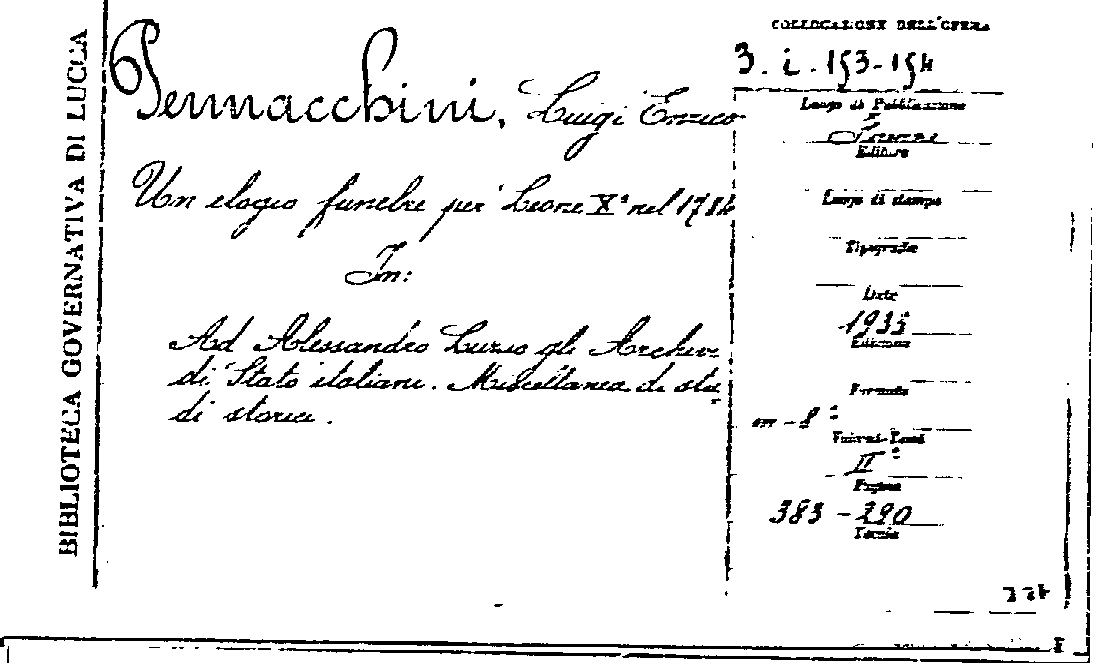 BIBLIOTECA GOVERNATIVA DI LUCCA
Pennacchini, Luigi Enrico
Un elogio funebre per Leone X° nel 1784
In:
Ad Alessandro Luzio gli Archivi
di Stato italiani. Miscellanea di stu-
di storici.
COLLOCAZIONE DELL'OPERA
3. i. 153-154
Luogo di Pubblicazione
Firenze
Editore
Luogo di stampa
Tipografia
Data
1933
Edizione
Formato
in-8°
Volumi-Tomi
II°
Pagine
383-390
Tavole